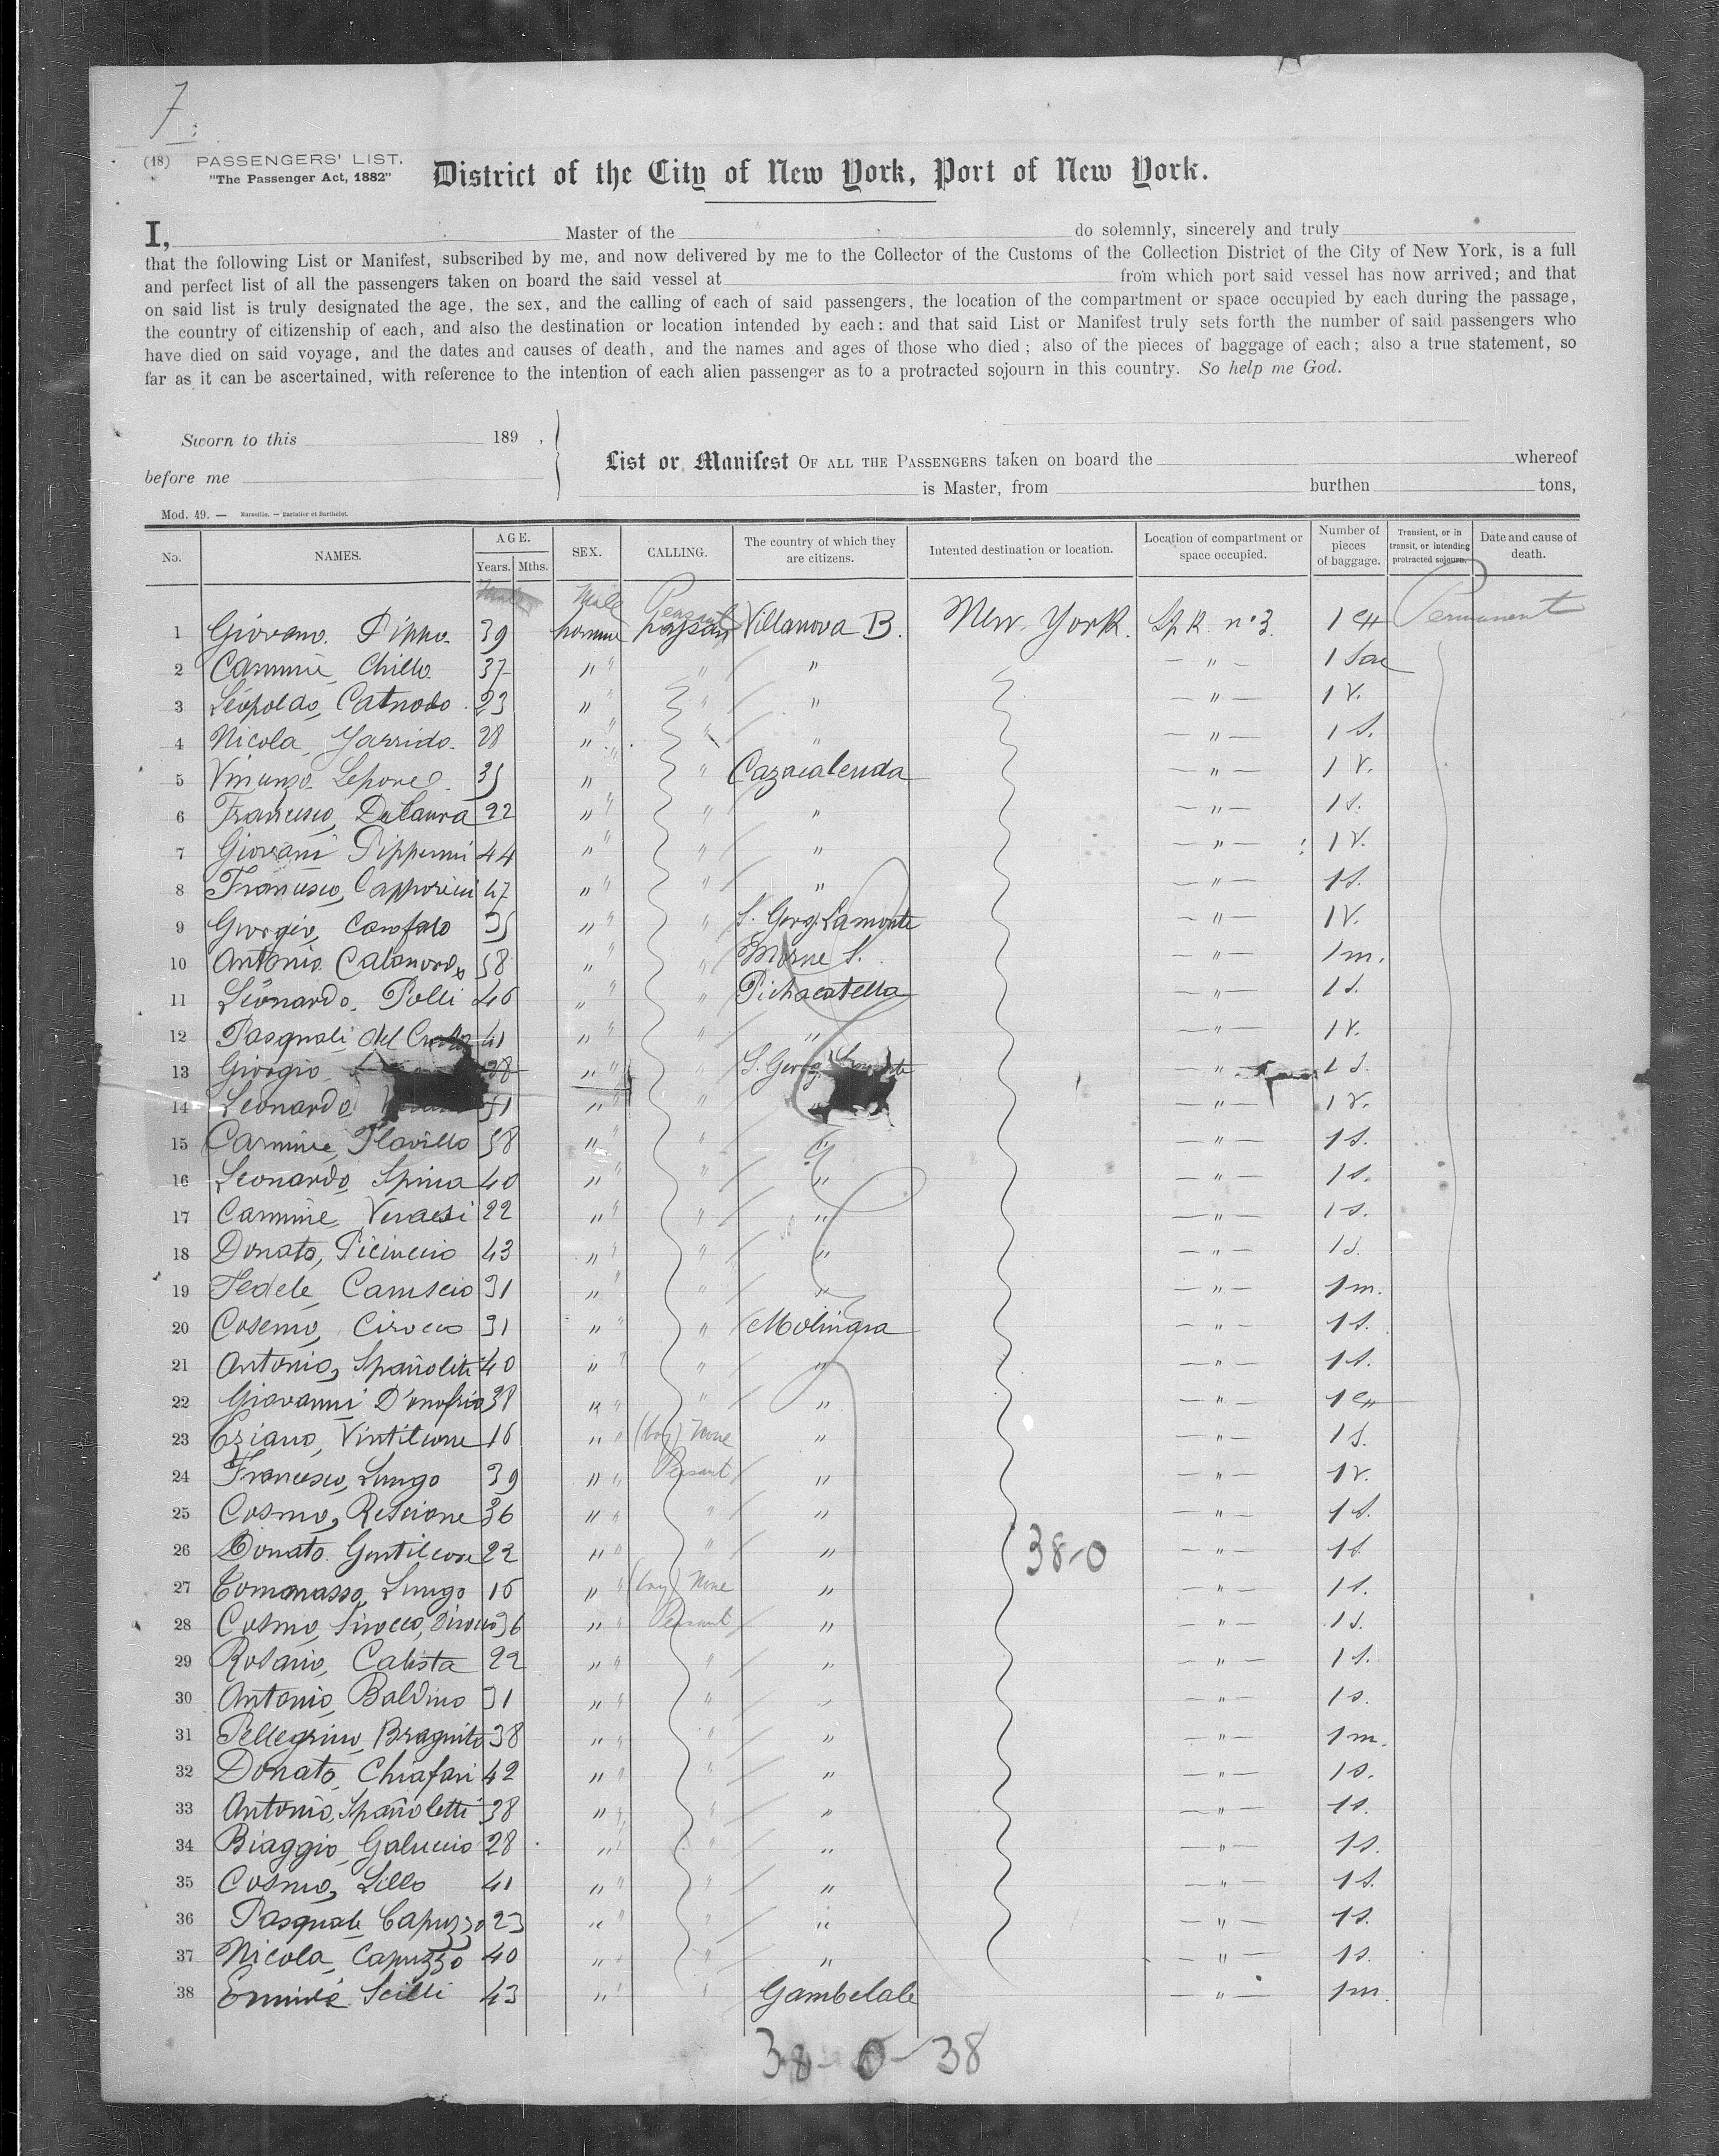 7
(18) PASSENGERS' LIST.
"The Passenger Act, 1882"
District of the City of New York, Port of New York.
I, Master of the do solemnly, sincerely and truly
that the following List or Manifest, subscribed by me, and now delivered by me to the Collector of the Customs of the Collection District of the City of New York, is a full
and perfect list of all the passengers taken on board the said vessel at from which port said vessel has now arrived; and that
on said list is truly designated the age, the sex, and the calling of each of said passengers, the location of the compartment or space occupied by each during the passage,
the country of citizenship of each, and also the destination or location intended by each: and that said List or Manifest truly sets forth the number of said passengers who
have died on said voyage, and the dates and causes of death, and the names and ages of those who died; also of the pieces of baggage of each; also a true statement, so
far as it can be ascertained, with reference to the intention of each alien passenger as to a protracted sojourn in this country. So help me God.
Sworn to this 189 ,
before me
List or Manifest OF ALL THE PASSENGERS taken on board the whereof
is Master, from burthen tons,
Mod. 49. — Marseille. — Barlatier et Barthelet.
No. NAMES. AGE. Years. Mths. SEX. CALLING. The country of which they are citizens. Intented destination or location. Location of compartment or space occupied. Number of pieces of baggage. Transient, or in transit, or intending protracted sojourn. Date and cause of death.
Male Peasant Permanent
1 Giovano Pippo 39 homme paysan Villanova B. New York. Sp R. n° 3. 1
2 Carmine, Chillo 37 " " " " — " — 1 Sac
3 Leopoldo, Catnodo 23 " " " " — " — 1 V.
4 Nicola, Garrido 28 " " " " — " — 1 S.
5 Vinunzo Lepore 35 " " " Cazacalenda — " — 1 V.
6 Francesco, De Laura 22 " " " " — " — 1 S.
7 Giovani Pippemi 44 " " " " — " — 1 V.
8 Francesco, Capporici 47 " " " " — " — 1 S.
9 Giorgio, Carofalo 35 " " " S. Gorg. Lamonte — " — 1 V.
10 Antonio Calanordo 38 " " " Morne S. — " — 1 m.
11 Leonardo, Polli 46 " " " Pichacatella — " — 1 S.
12 Pasquali del 41 " " " " — " — 1 V.
13 Giorgio, 28 " " " S. Gorg. — " — 1 S.
14 Leonardo 31 " " " " — " — 1 V.
15 Carmine, Flavillo 38 " " " " — " — 1 S.
16 Leonardo Spina 40 " " " " — " — 1 S.
17 Carmine, Veraesi 22 " " " " — " — 1 S.
18 Donato, Piciuccio 43 " " " " — " — 1 S.
19 Fedele, Caruscio 31 " " " " — " — 1 m.
20 Cosemo, Cirocco 31 " " " Molinara — " — 1 S.
21 Antonio, Spañoliti 40 " " " " — " — 1 S.
22 Giovanni D'onofrio 38 " " " " — " — 1
23 Vintilione 16 " " (boy) None " — " — 1 S.
24 Francesco, Lungo 39 " " Peasant " — " — 1 V.
25 Cosmo, Rescione 36 " " " " — " — 1 S.
26 Donato Gentilcore 22 " " " " 38-0 — " — 1 S.
27 Tommasso, Lungo 16 " " (boy) None " — " — 1 S.
28 Cosmo, Sirocco, Dirocco 36 " " Peasant " — " — 1 S.
29 Rosario, Calista 22 " " " " — " — 1 S.
30 Antonio, Baldino 31 " " " " — " — 1 S.
31 Pellegrino, Bragnito 38 " " " " — " — 1 m.
32 Donato, Chiafari 42 " " " " — " — 1 S.
33 Antonio, Spañoletti 38 " " " " — " — 1 S.
34 Biaggio, Galuccio 28 " " " " — " — 1 S.
35 Cosmo, Lillo 41 " " " " — " — 1 S.
36 Pasquale Capuzzo 23 " " " " — " — 1 S.
37 Nicola, Capuzzo 40 " " " " — " — 1 S.
38 Scilli 43 " " " Gambelale — " — 1 m.
38-0-38